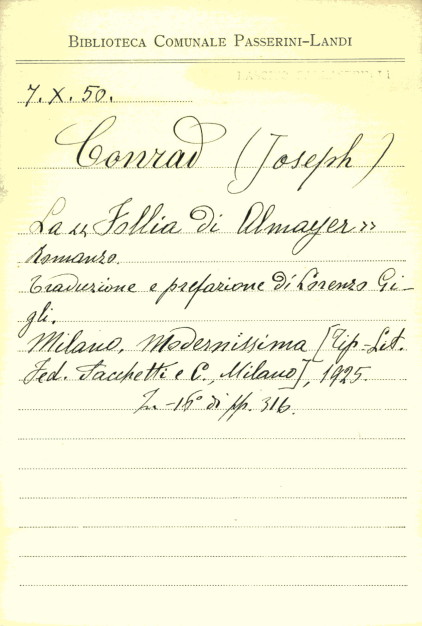 BIBLIOTECA COMUNALE PASSERINI-LANDI
7. X. 50.
Conrad (Joseph)
La « Follia di Almayer »
Romanzo.
Traduzione e prefazione di Lorenzo Gi-
gli.
Milano, Modernissima [Tip-Lit.
Fed. Sacchetti e C., Milano], 1925.
In -16° di pp. 316.